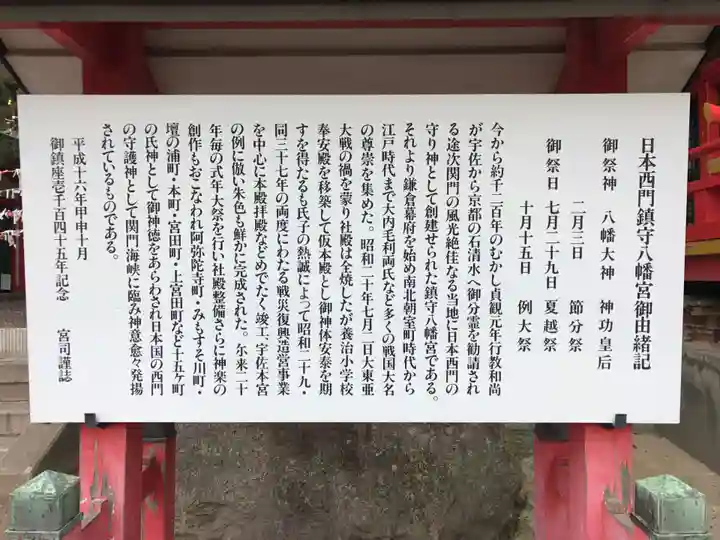 日本西門鎮守八幡宮御由緒記
御祭神 八幡大神 神功皇后
二月三日 節分祭
御祭日 七月二十九日 夏越祭
十月十五日 例大祭
今から約千二百年のむかし貞観元年行教和尚
が宇佐から京都の石清水へ御分霊を勧請され
る途次関門の風光絶佳なる当地に日本西門の
守り神として創建せられた鎮守八幡宮である。
それより鎌倉幕府を始め南北朝室町時代から
江戸時代まで大内毛利両氏など多くの戦国大名
の尊崇を集めた。昭和二十年七月二日大東亜
大戦の禍を蒙り社殿は全焼したが養治小学校
奉安殿を移築して仮本殿とし御神体安泰を期
すを得たるも氏子の熱誠によって昭和二十九・
同三十七年の両度にわたる戦災復興造営事業
を中心に本殿拝殿などめでたく竣工、宇佐本宮
の例に倣い朱色も鮮かに完成された。尓来二十
年毎の式年大祭を行い社殿整備さらに神楽の
創作もおこなわれ阿弥陀寺町・みもすそ川町・
壇の浦町・本町・宮田町・上宮田町など十五ヶ町
の氏神として御神徳をあらわされ日本国の西門
の守護神として関門海峡に臨み神意愈々発揚
されているものである。
平成十六年甲申十月
御鎮座壱千百四十五年記念 宮司謹誌